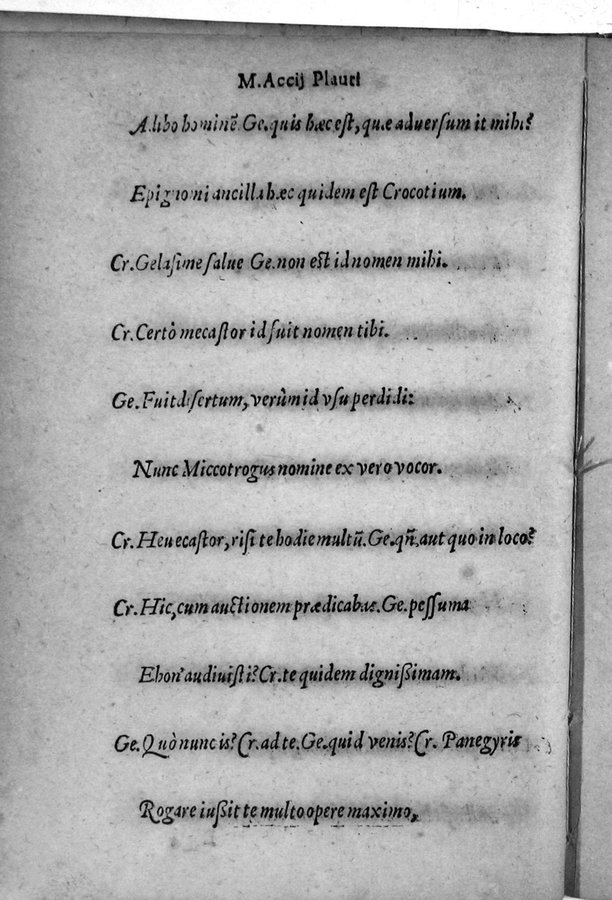 M. Accij Plauti
Alibo hominē Ge. quis hæc est, quæ adversum it mihi?
Epignomi ancilla hæc quidem est Crocotium.
Cr. Gelasime salue Ge. non est id nomen mihi.
Cr. Certò mecastor id fuit nomen tibi.
Ge. Fuit disertum, verùm id vsu perdidi:
Nunc Miccotrogus nomine ex vero vocor.
Cr. Heu ecastor, risi te hodie multū. Ge. qñ, aut quo in loco?
Cr. Hic, cum auctionem prædicabas. Ge. pessuma
Ehon' audiuisti? Cr. te quidem dignißimam.
Ge. Quò nunc is? Cr. ad te. Ge. quid venis? Cr. Panegyris
Rogare iußit te multo opere maximo,